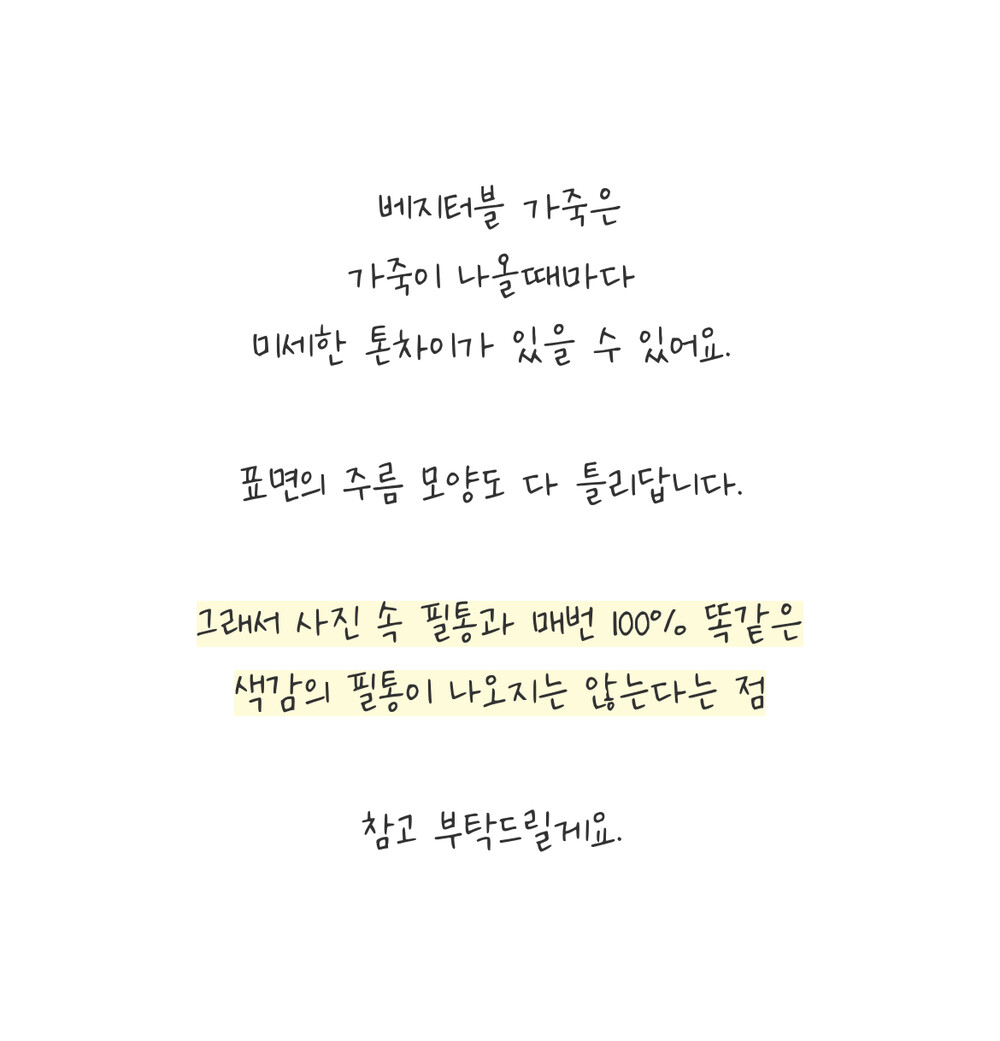 베지터블 가죽은
가죽이 나올때마다
미세한 톤차이가 있을 수 있어요.
표면의 주름 모양도 다 틀리답니다.
그래서 사진 속 필통과 매번 100% 똑같은
색감의 필통이 나오지는 않는다는 점
참고 부탁드릴게요.